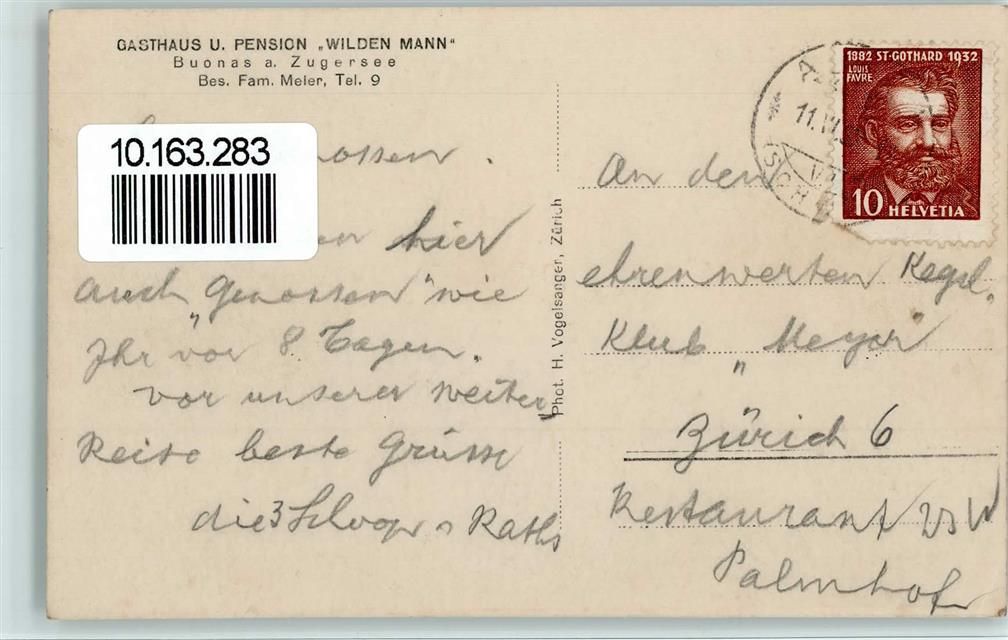 GASTHAUS U. PENSION „WILDEN MANN"
Buonas a. Zugersee
Bes. Fam. Meier, Tel. 9
10.163.283
hier
auch „Genossen" wie
Ihr vor 8 Tagen.
vor unserer Weiter
Reise beste Grüsse
die 3
Phot. H. Vogelsanger, Zürich
1882 ST-GOTHARD 1932
LOUIS
FAVRE
10 HELVETIA
11.
An den
ehrenwerten Kegel-
Klub „Meyer
Zürich 6
Restaurant
Palmhof